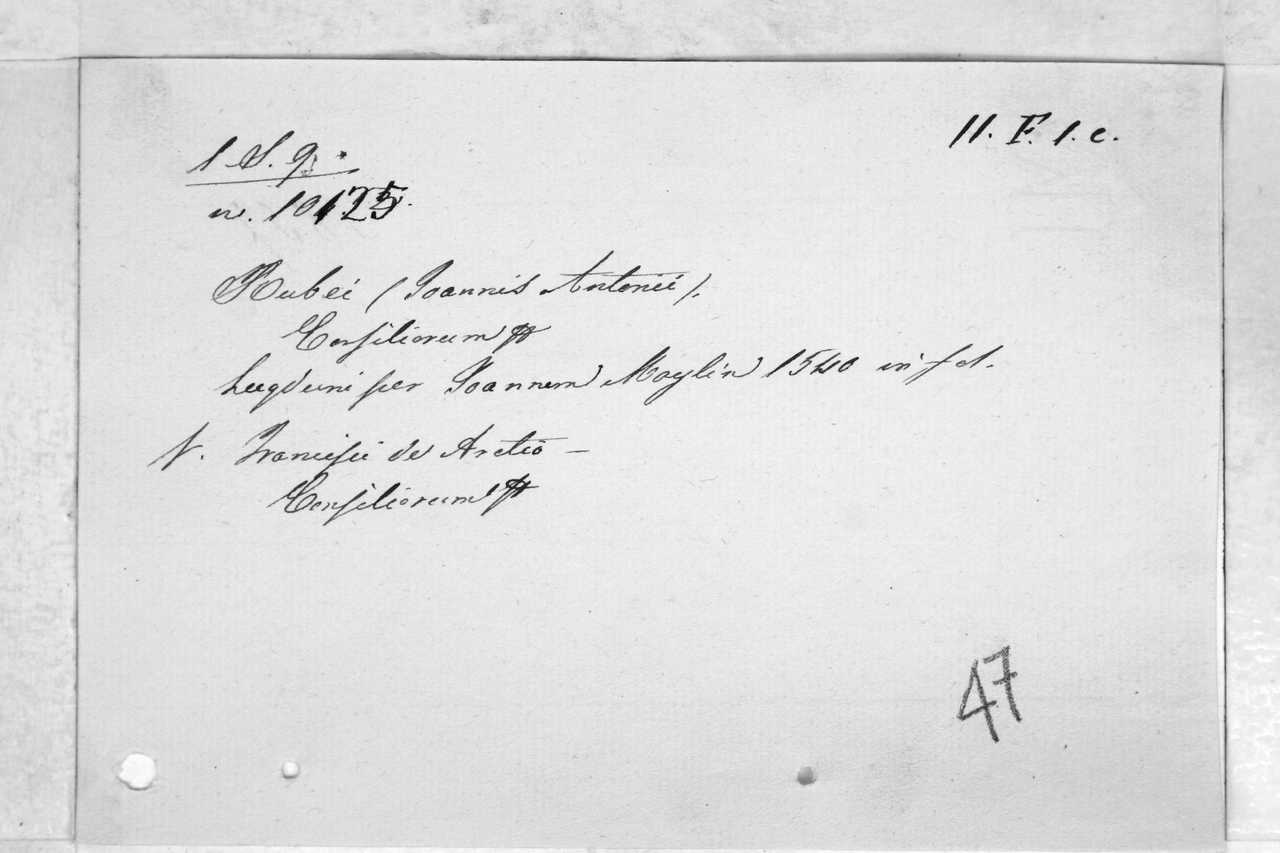 11. F. 1. c.
1 S. 9.
n. 10125.
Rubei (Joannis Antonii).
Consiliorum
Lugduni per Joannem Moylin 1540 in fol.
V. Francisci de Aretio —
Consiliorum
47